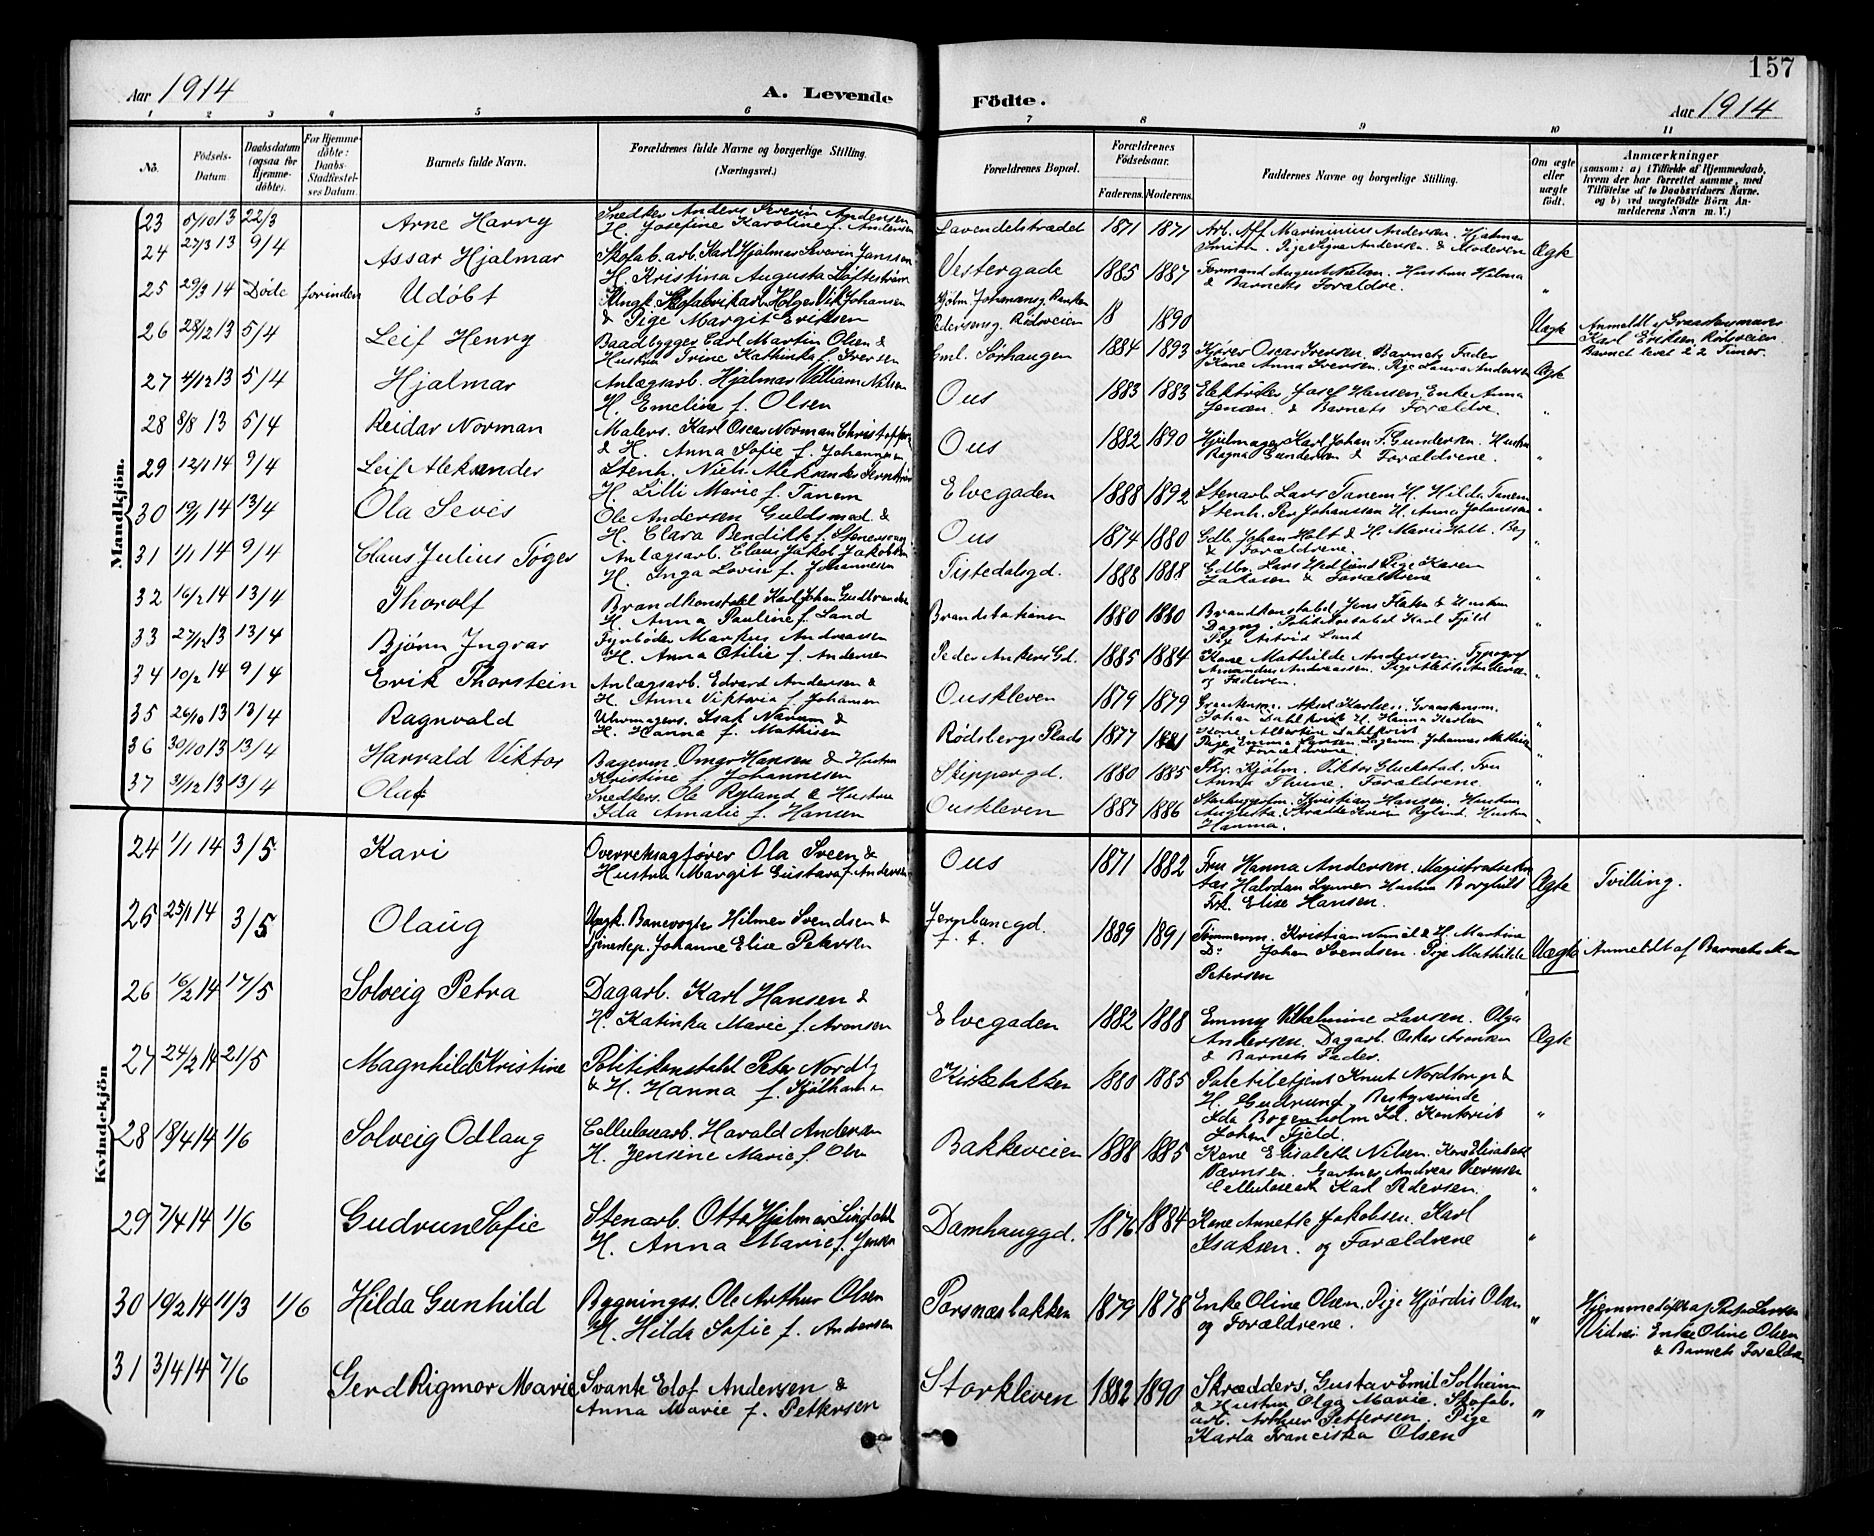 157
Aar 1914
A. Levende
Födte.
Aar 1914
1 2 3 4 5 6 7 8 9 10 11
No.
Födsels-Datum.
Daabsdatum (ogsaa for Hjemmedöbte).
For Hjemmedöbte: Daabs-Stadfæstelses Datum.
Barnets fulde Navn.
Forældrenes fulde Navne og borgerlige Stilling. (Næringsvei.)
Forældrenes Bopæl.
Forældrenes Födselsaar.
Faderens. Moderens.
Faddernes Navne og borgerlige Stilling.
Om ægte eller uægte födt.
Anmærkninger
(saasom: a) i Tilfælde af Hjemmedaab, hvem der har forrettet samme, med Tilföielse af to Daabsvidners Navne, og b) ved uægtefödte Börn Anmelderens Navn m. V.)
Mandkjön.
23 5/10 13 22/3 Arne Harry Snedker Anders Severin Andersen
H. Josefine Karoline f. Andersen Lavendelstrædet 1871 1871 Arb. Alf Marininius Andersen. Hjalmar
Smith. Pige Signe Andersen. & Moderen Ægte
24 27/3 13 9/4 Assar Hjalmar Skofab.arb. Karl Hjalmar Severin Janssen
H. Kristina Augusta Vestergade 1885 1887 Formand August Nielsen. Hustru Hilma
& Barnets Forældre. "
25 29/3 14 Døde forinden Udøbt Ungk. Holger Johansen
& Pige Margit Eriksen Rødsveien 18 1890 Uægte Anmeldt af
Karl Eriksen Rødsveien.
Barnet levet 22 Timer.
26 28/12 13 5/4 Leif Henry Baadbygger Carl Martin Olsen &
Hustru Trine Kathinka f. Iversen Eml. Sørhaugen 1884 1893 Kjører Oscar Iversen. Barnets Fader
Kone Anna Iversen. Pige Laura Andersen Ægte
27 4/12 13 5/4 Hjalmar Anlægsarb. Hjalmar William Nilsen
H. Emeline f. Olsen Ous 1883 1883 Elektriker Josef Hansen. Enke Anna
Jensen. & Barnets Forældre. "
28 8/8 13 5/4 Reidar Norman Malers. Karl Oscar Norman
& H. Anna Sofie f. Johannesen Ous 1882 1890 Hjulmager Karl Johan F. Gundersen. Hustru
Ragna Gundersen & Forældrene. "
29 12/1 14 9/4 Leif Aleksander Stenh. Niels Aleksander
H. Lilli Marie f. Tanem Elvegaden 1888 1892 Stenarb. Lars Tanem H. Hilda Tanem
Stenh. Per Johanssen H. Anna Johanssen "
30 19/1 14 13/4 Ola Sevis Ole Andersen Guldsmed &
H. Clara Bendikke f. Ous 1874 1880 Gdb. Johan Holt & H. Marie Holt.
& Forældrene. "
31 1/1 14 9/4 Claus Julius Töger Anlægsarb. Claus Jakob Jakobsen
H. Inga Lovise f. Johannesen Tistedalsgd. 1888 1888 Gdbr. Lars Hedlund Pige Karen
& Forældrene "
32 16/2 14 13/4 Thorolf Brandkonstabel Karl Johan Gudbrandsen
H. Anna Pauline f. Lund Brandstationen 1880 1880 Brandkonstabel Jens & Hustru
Dagny. Politikonstabel Karl Fjeld
Pige Astrid Lund "
33 27/12 13 13/4 Bjørn Ingvar Fyrbøder Markus Andreassen
H. Anna Otilie f. Andersen Peder Ankers Gd. 1885 1884 Kone Mathilde Andersen. Typograf
Amandus Andreassen. Pige
og Faderen. "
34 10/2 14 9/4 Erik Thorstein Anlægsarb. Edvard Andersen &
H. Anna Viktoria f. Johansen Ouskleven 1879 1879 Aksel Karlsen.
Johan Dahlkvist H. Hanna Karlsen
Kone Albertine Dahlkvist "
35 26/10 13 13/4 Ragnvald Uhrmagers. Isak &
H. Hanna f. Mathisen Rødsbergs Plads 1877 1881 Pige Emma Johannes
& Forældrene "
36 30/10 13 13/4 Harvald Viktor Bagerm. Omar Hansen & Hustru
Kristine f. Johannesen Skippergd. 1880 1885 Kjølm. Viktor Gluckstad. Fru
Anna Thune. Forældrene. "
37 31/12 13 13/4 Oluf Snedkers. Ole Ryland & Hustru
Ida Amalie f. Hansen Ouskleven 1887 1886 Kristian Hansen. Hustru
Augusta. Ryland. Hustru
Hanna. "
Kvindekjön
24 1/1 14 3/5 Kari Overretssagfører Ola Sveen &
Hustru Margit Gustava f. Andersen Ous 1871 1882 Fru Hanna Andersen.
Halvdan Hustru Borghild
Frk. Elise Hansen. Ægte Tvilling.
25 25/1 14 3/5 Olaug Ungk. Banevogter Hilmer Svendsen &
Tjenestep. Johanne Elise Petersen Jernbanegd.
f. t. 1889 1891 Tømmerm. Kristian & H. Martine
Do Johan Svendsen. Pige Mathilde
Petersen Uægte Anmeldt af Barnets
26 16/2 14 17/5 Solveig Petra Dagarb. Karl Hansen &
H. Katinka Marie f. Aronsen Elvegaden 1882 1888 Emmy Vilhelmine Larsen. Olga
Andersen. Dagarb. Oskar Aronsen
& Barnets Fader. Ægte
27 24/2 14 21/5 Magnhild Kristine Politikonstabel Peter Nordby
& H. Hanna f. Kirkebakken 1880 1885 Knut
H. Gudrund. Bestyrerinde
Ida Bogenholm Kontorist
Johan Fjeld. "
28 18/4 14 1/6 Solveig Odlaug Cellulosearb. Harald Andersen
H. Jensine Marie f. Olsen Bakkeveien 1888 1885 Kone Elisabeth Nilsen. Kone Elisabeth
Gartner Andreas
Cellulosearb. Karl Pedersen. "
29 7/4 14 1/6 Gudrun Sofie Stenarb. Otto Hjalmar Lindahl
H. Anna Marie f. Jensen Damhauggd. 1876 1884 Kone Annette Jakobsen. Karl
Isaksen. og Forældrene "
30 19/2 14 11/3 1/6 Hilda Gunhild Bygningss. Ole Arthur Olsen
H. Hilda Sofie f. Andersen Porsnæsbakken 1879 1878 Enke Oline Olsen. Pige Hjørdis Olsen
og Forældrene. " Hjemmedøbt af Past. Larsen
Vidner: Enke Oline Olsen
& Barnets Forældre
31 3/4 14 7/6 Gerd Rigmor Marie Svante Elof Andersen &
Anna Marie f. Pettersen Storkleven 1882 1890 Skrædders. Gustav Emil Solheim
& Hustru Olga Marie. Skofab.
arb. Arthur Pettersen. Pige
Karla Franciska Olsen "